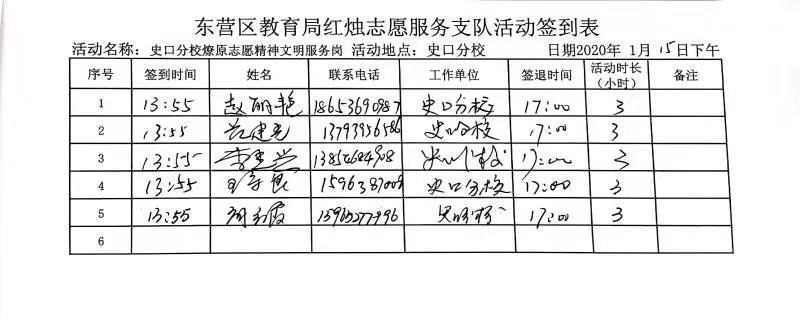 东营区教育局红烛志愿服务支队活动签到表
活动名称： 史口分校燎原志愿精神文明服务岗 活动地点：史口分校 日期2020年 1月 15日下午
序号 签到时间 姓名 联系电话 工作单位 签退时间 活动时长（小时） 备注
1 13:55 赵丽艳 18653690987 史口分校 17:00 3
2 13:55 13793956586 史口分校 17:00 3
3 13:55 史口分校 17:00 3
4 13:55 史口分校 17:00 3
5 13:55 史口分校 17:00 3
6